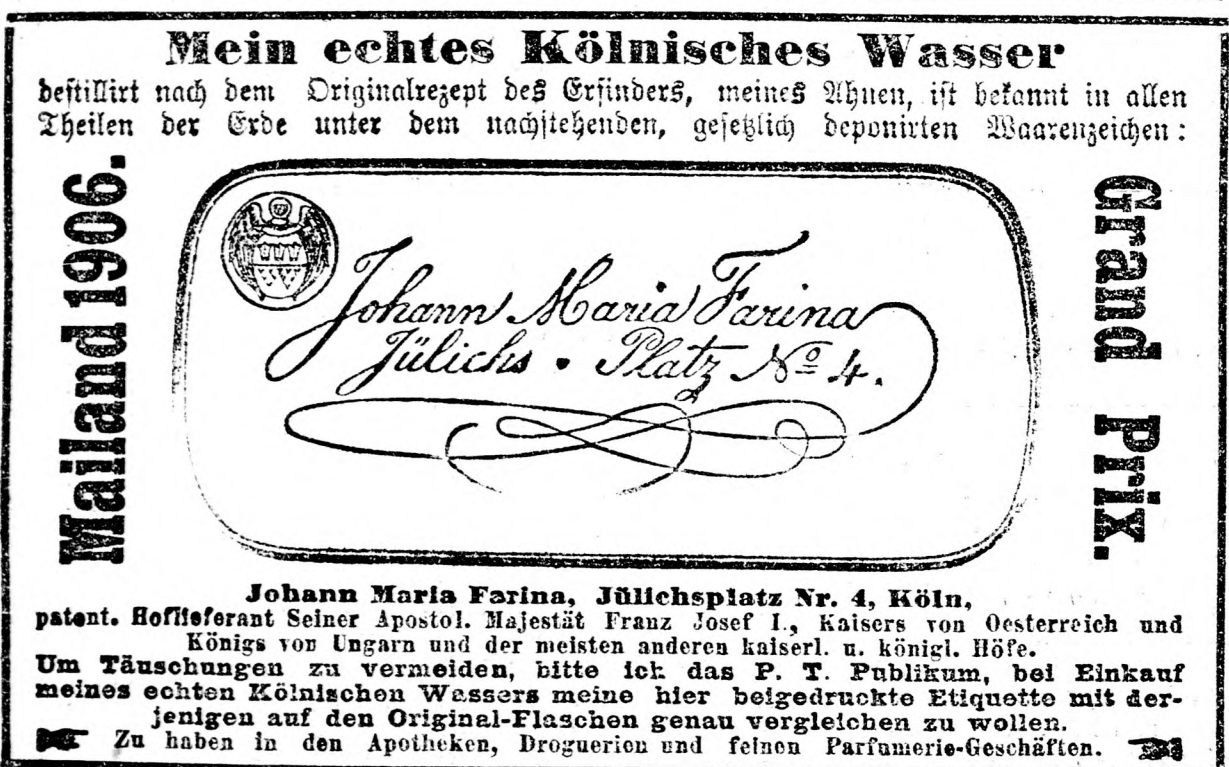 Mein echtes Kölnisches Wasser
destillirt nach dem Originalrezept des Erfinders, meines Ahnen, ist bekannt in allen
Theilen der Erde unter dem nachstehenden, gesetzlich deponirten Waarenzeichen:
Mailand 1906.
Johann Maria Farina
Jülichs · Platz No 4.
Grand Prix.
Johann Maria Farina, Jülichsplatz Nr. 4, Köln,
patent. Hoflieferant Seiner Apostol. Majestät Franz Josef I., Kaisers von Oesterreich und
Königs von Ungarn und der meisten anderen kaiserl. u. königl. Höfe.
Um Täuschungen zu vermeiden, bitte ich das P. T. Publikum, bei Einkauf
meines echten Kölnischen Wassers meine hier beigedruckte Etiquette mit der-
jenigen auf den Original-Flaschen genau vergleichen zu wollen.
Zu haben in den Apotheken, Droguerien und feinen Parfumerie-Geschäften.